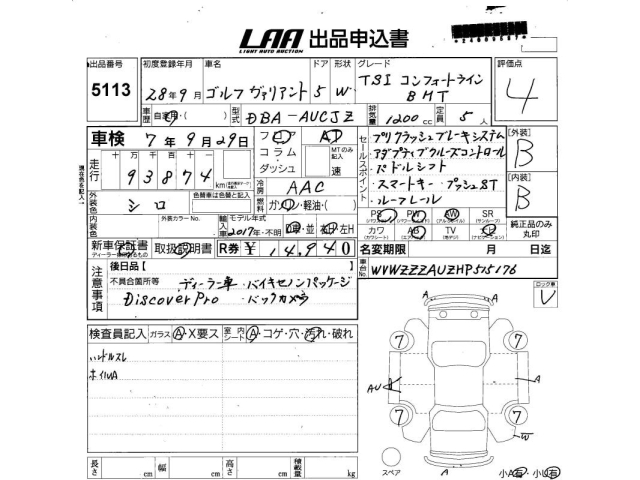 LAA 出品申込書
LIGHT AUTO AUCTION
出品番号 5113
初度登録年月 28年9月
車名 ゴルフ ヴァリアント
ドア 5
形状 W
グレード TSI コンフォートライン
BMT
評価点 4
車歴 自家用・( )
型式 DBA-AUCJZ
排気量 1200 cc
定員 5 人
車検 7年9月29日
フロア コラム・ダッシュ
AT
MTのみ記入 速
走行 十万 万 千 百 十 一
93874 km
冷房 AAC
外装色 シロ
色替車は色替と記入
燃料 ガソリン・軽油・( )
内装色
外装カラーNo.
輸入車 モデル年式 2017年・不明
ディーラー・並 右・左H
新車保証書 取扱説明書 R券 ¥14,940
セールスポイント
・プリクラッシュブレーキシステム
・アダプティブクルーズコントロール
・パドルシフト
・スマートキー プッシュST
・ルーフレール
【外装】 B
【内装】 B
PS PW AW SR
カワ AB TV ナビ
純正品のみ丸印
名変期限 月 日迄
車台No. WVWZZZAUZHP575176
注意事項
後日品【
不具合箇所等 ディーラー車 ・バイキセノンパッケージ
Discover Pro ・バックカメラ
検査員記入 ガラス A・X要ス 室内シート A・コゲ・穴・汚れ・破れ
ハンドルスレ
ホイルA
ロック車 レ
A
7 7
AU A
7 7
W
A
スペア
小A有・小U有
長さ cm 幅 cm 高さ cm 積載量 kg